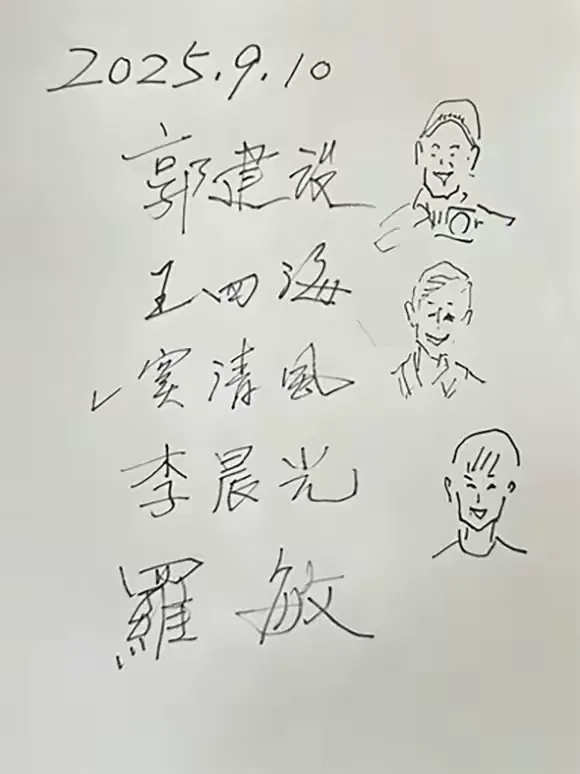 2025.9.10
郭建设
王四海
✓窦清风
李晨光
羅敏